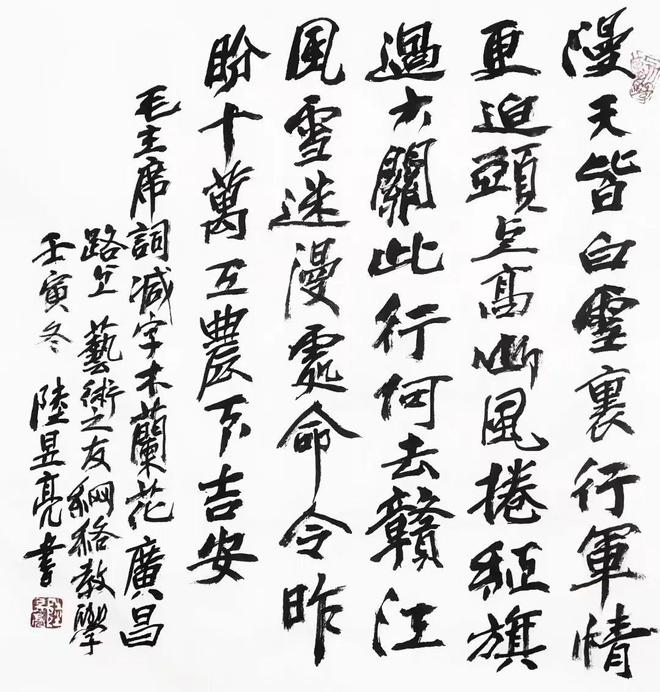 漫天皆白雪裏行軍情
更迫頭上高山風捲紅旗
過大關此行何去贛江
風雪迷漫處命令昨
盼十萬工農下吉安
毛主席詞減字木蘭花廣昌
路上 藝術之友網絡教學
壬寅冬 陸昱亮書